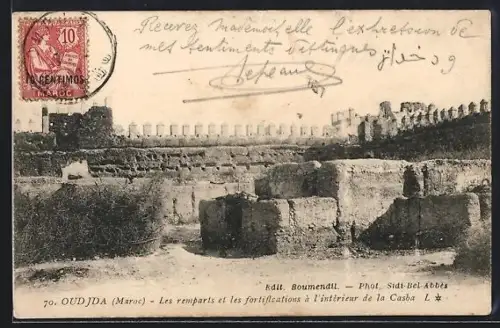 10
10 CENTIMOS
MAROC
Recevez Mademoiselle l'expression de
mes sentiments distingués
Edit. Boumendil. — Phot. Sidi-Bel-Abbès
70. OUDJDA (Maroc) - Les remparts et les fortifications à l'intérieur de la Casba L